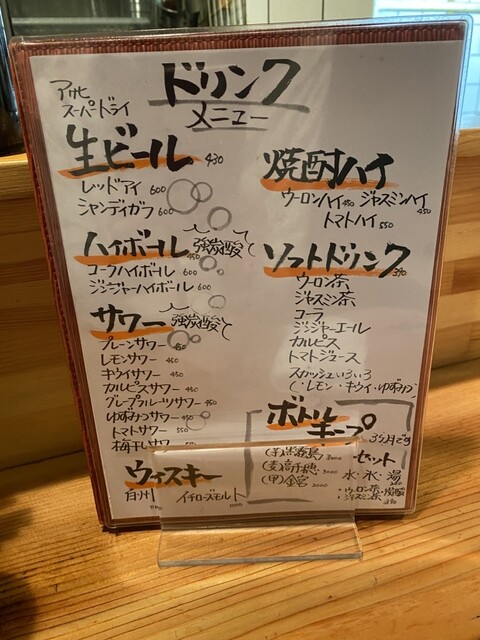 ドリンク
メニュー
アサヒ
スーパードライ
生ビール 430
レッドアイ 600
シャンディガフ 600
ハイボール 450 強炭酸
コーラハイボール 600
ジンジャーハイボール 600
サワー 強炭酸
プレーンサワー 450
レモンサワー 450
キウイサワー 450
カルピスサワー 450
グレープフルーツサワー 450
ゆずみつサワー 450
トマトサワー 550
梅干しサワー
ウィスキー
白州 イチローズモルト
焼酎ハイ
ウーロンハイ 450 ジャスミンハイ 450
トマトハイ 550
ソフトドリンク 390
ウーロン茶
ジャスミン茶
コーラ
ジンジャーエール
カルピス
トマトジュース
スカッシュいろいろ
(・レモン・キウイ・ゆずみつ)
ボトル
キープ 3ヶ月です
(芋) 3000
(麦)高千穂 3000
(甲)金宮 2000
セット
水・氷・湯
・ウーロン茶・
・ジャスミン茶